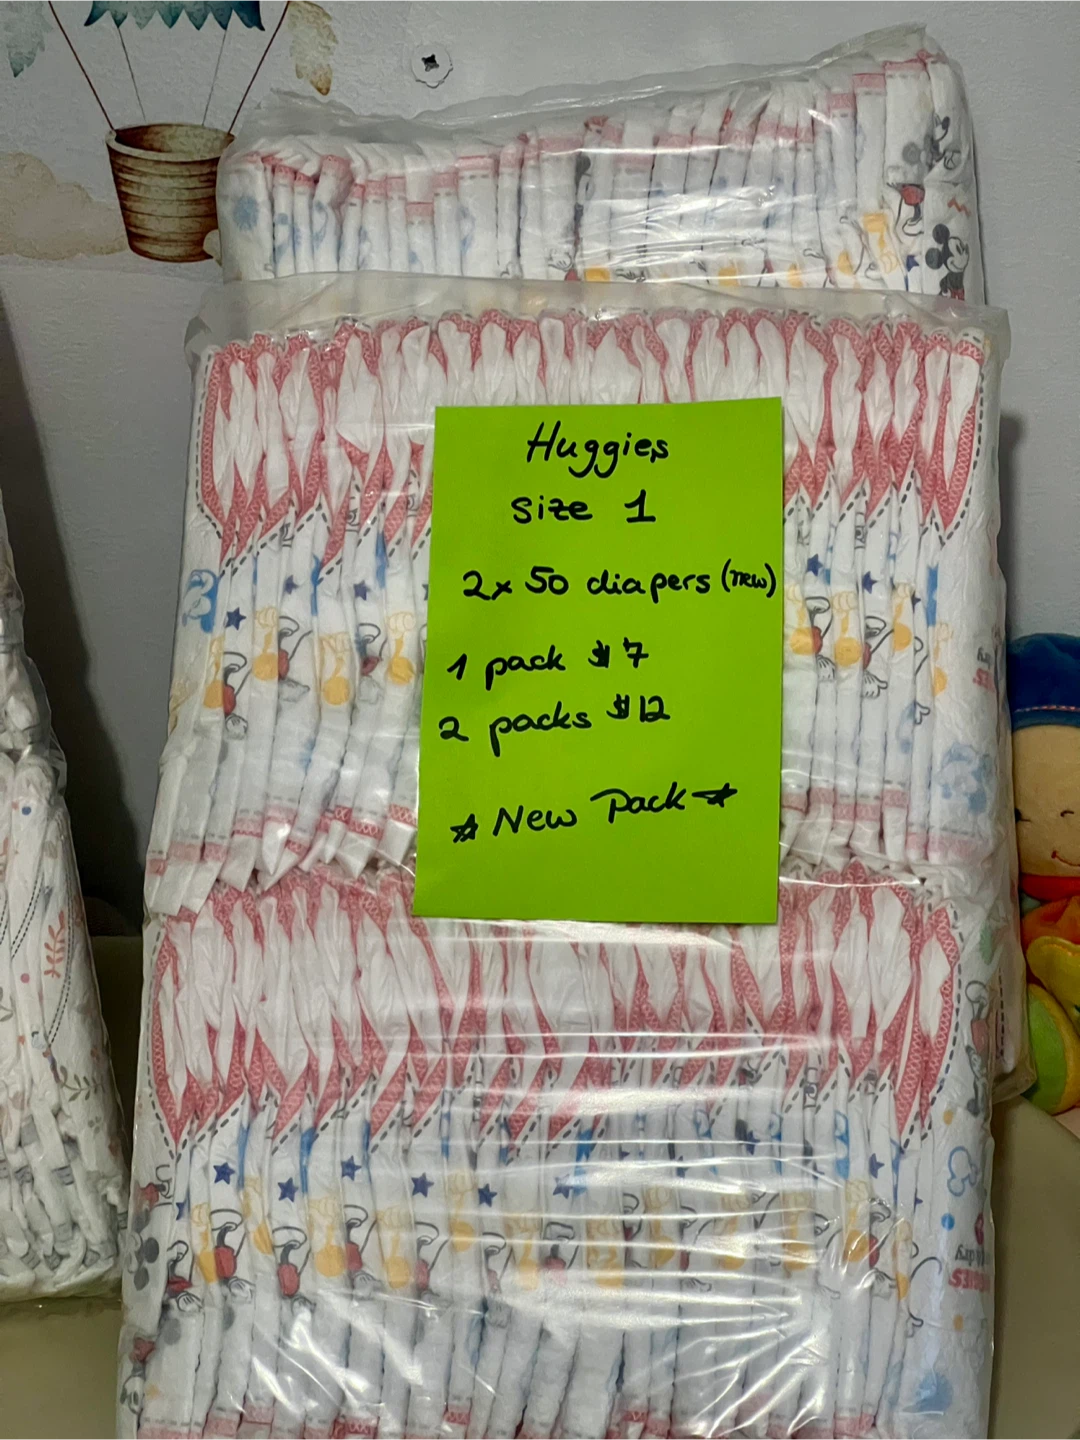 Huggies
Size 1
2x 50 diapers (new)
1 pack $7
2 packs $12
☆ New Pack ☆